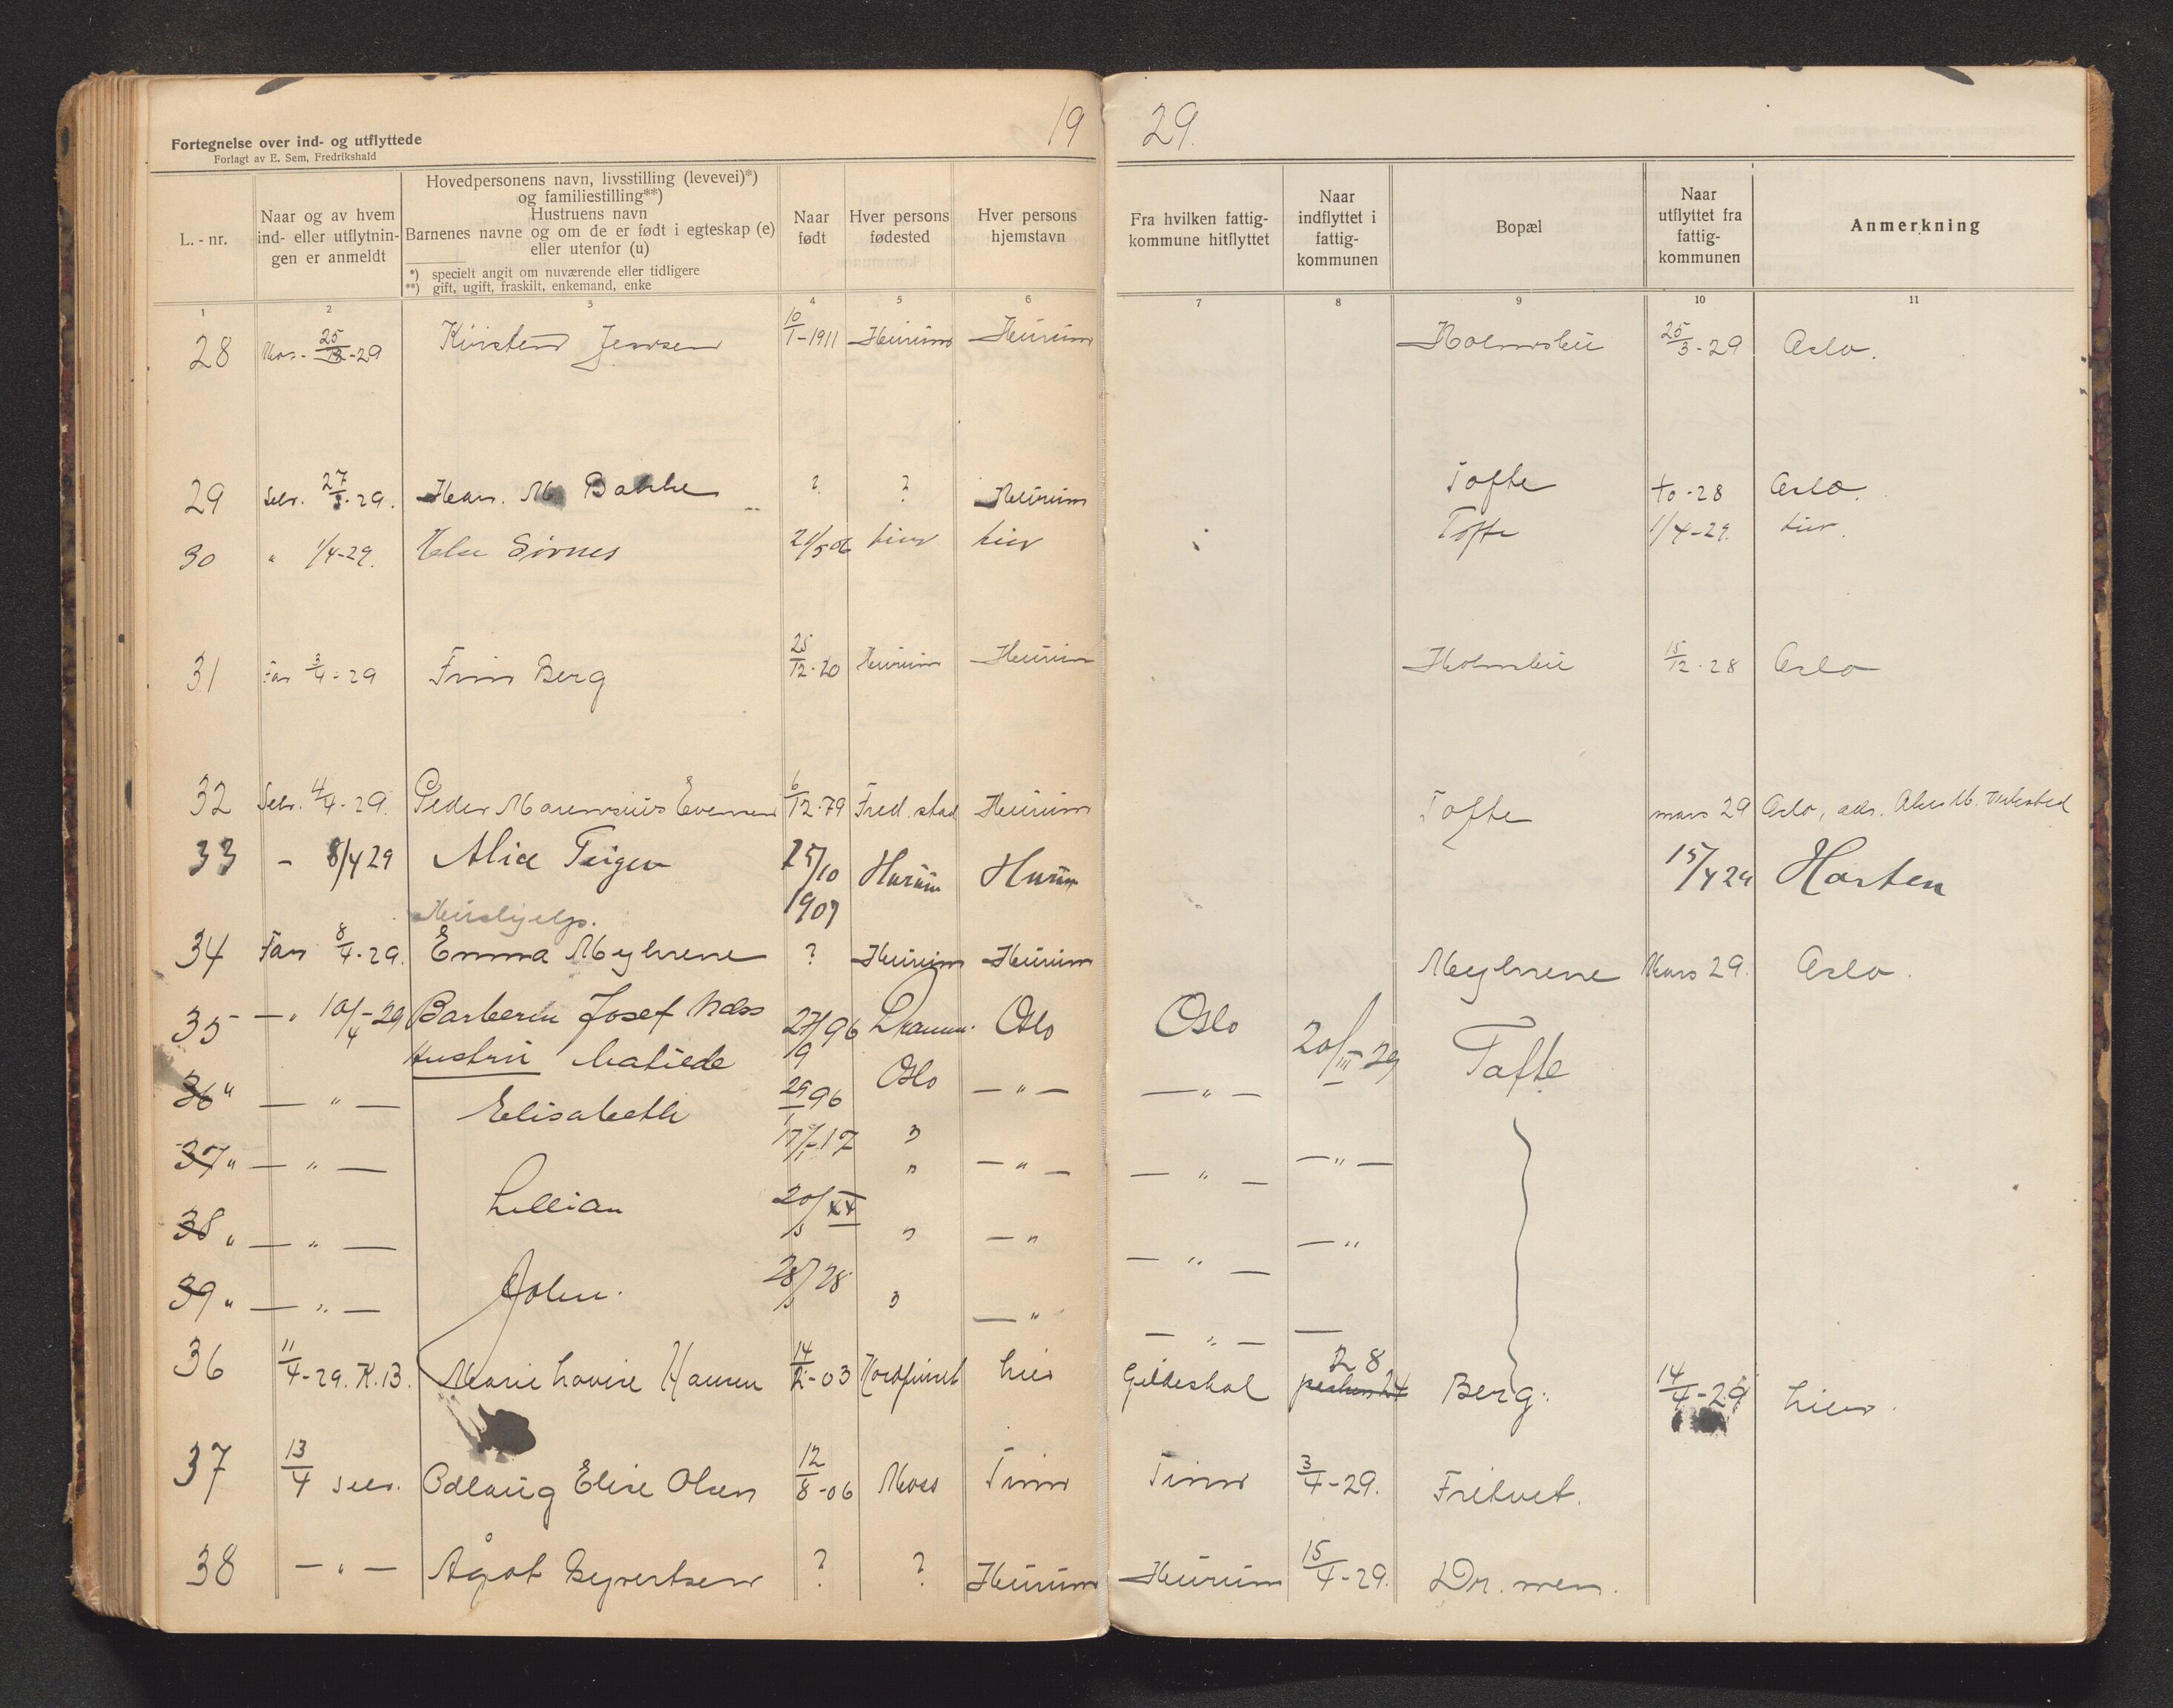 19 29.
Fortegnelse over ind- og utflyttede
Forlagt av E. Sem, Fredrikshald
L.-nr.
Naar og av hvem
ind- eller utflytnin-
gen er anmeldt
Hovedpersonens navn, livsstilling (levevei)*)
og familiestilling**)
Hustruens navn
Barnenes navne og om de er født i egteskap (e)
eller utenfor (u)
*) specielt angit om nuværende eller tidligere
**) gift, ugift, fraskilt, enkemand, enke
Naar
født
Hver persons
fødested
Hver persons
hjemstavn
Fra hvilken fattig-
kommune hitflyttet
Naar
indflyttet i
fattig-
kommunen
Bopæl
Naar
utflyttet fra
fattig-
kommunen
Anmerkning
1 2 3 4 5 6 7 8 9 10 11
28 25/3-29 Kirsten Jensen 10/1-1911 Hurum Hurum Holmsbu 25/3-29 Oslo.
29 Selv. 27/3-29. M. Bakke ? ? Hurum Tofte to-28 Oslo.
30 " 1/4-29. Sörnes 21/5 06 Lier Lier Tofte 1/4-29. Lier.
31 Far 3/4-29 Finn Berg 25/12-20 Hurum Hurum Holmsbu 15/12-28 Oslo
32 Selv. 4/4-29. Peder Marensius Evensen 6/12-79 Fred.stad Hurum Tofte mars 29 Oslo, adr. Akers M. Verksted
33 - 8/4 29 Alice Teigen 25/10 1907 Hurum Hurum 15/4 29 Horten
Hushjelp.
34 Far 8/4-29. Emma Myhrene ? Hurum Hurum Myhrene Mars 29. Oslo.
35 -"- 10/4-29 Barberer Josef Næss 27/9 96 Dramm. Oslo Oslo 20/III-29 Tofte
Hustru Matilde
36 " -"- Elisabeth 29/1 96 Oslo -"- -"-
37 " -"- 17/1-17 " -"- -"- -"-
38 " -"- Lillian 20/3 XX " -" -"- -"
39 " -"- John. 28/3 28 " -" -"- -
36 11/4-29. K.13. Marie Lovise Hansen 14/2-03 Nordfjord Lier Gildeskål 28 Berg. 14/4-29 Lier.
37 13/4 selv. Odlaug Elise Olsen 12/8-06 Moss Tinn Tinn 3/4-29. Fritvet.
38 -"- Ågot Syvertsen ? ? Hurum Hurum 15/4-29. Dr.men.